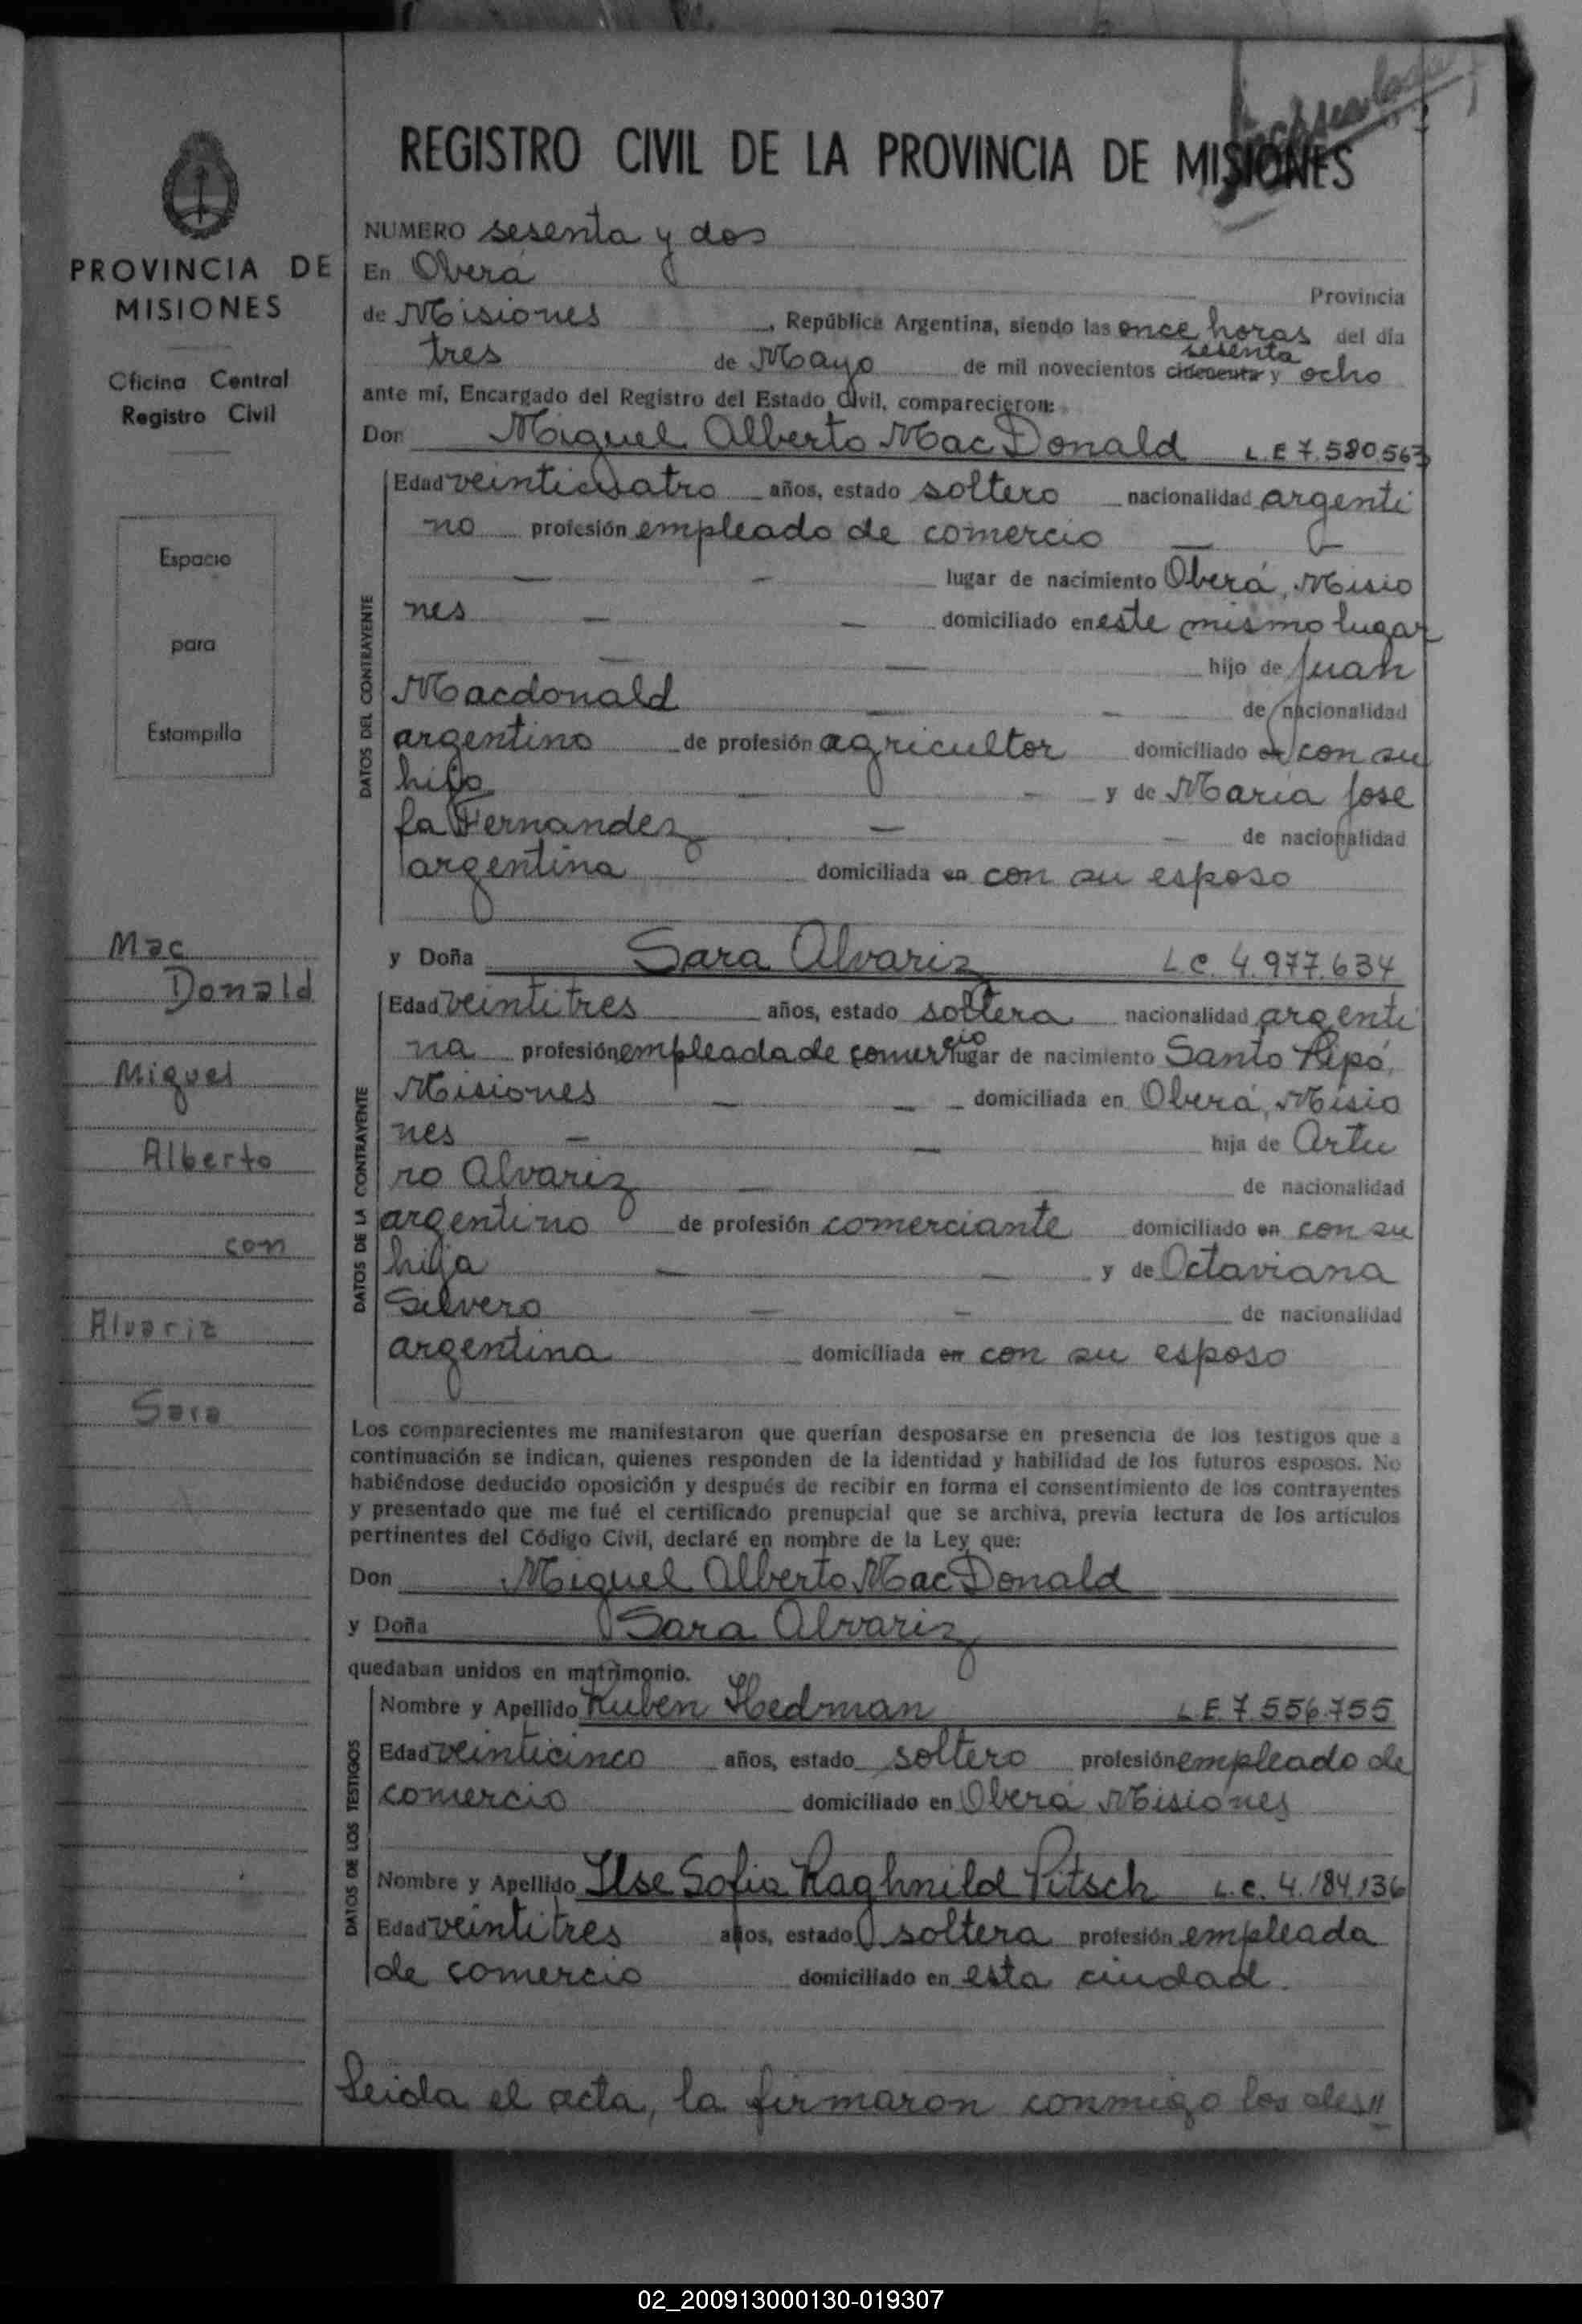 REGISTRO CIVIL DE LA PROVINCIA DE MISIONES
PROVINCIA DE
MISIONES
Oficina Central
Registro Civil
Espacio
para
Estampilla
Mac
Donald
Miguel
Alberto
con
Alvariz
Sara
NUMERO sesenta y dos
En Oberá
Provincia
de Misiones, República Argentina, siendo las once horas del día
sesenta
tres de Mayo de mil novecientos cincuenta y ocho
ante mí, Encargado del Registro del Estado Civil, comparecieron:
Don Miguel Alberto Mac Donald L.E 7.580.563
DATOS DEL CONTRAYENTE
Edad veinticuatro años, estado soltero nacionalidad argenti
no profesión empleado de comercio —
— — lugar de nacimiento Oberá, Misio
nes — — domiciliado en este mismo lugar
— — hijo de Juan
Macdonald — — de nacionalidad
argentino de profesión agricultor domiciliado en con su
hijo — — y de María Jose
fa Fernandez — — de nacionalidad
argentina domiciliada en con su esposo
y Doña Sara Alvariz L.C. 4.977.634
DATOS DE LA CONTRAYENTE
Edad veintitres años, estado soltera nacionalidad argenti
na profesión empleada de comercio lugar de nacimiento Santo Pipó,
Misiones — — domiciliada en Oberá, Misio
nes — — hija de Artu
ro Alvariz — — de nacionalidad
argentino de profesión comerciante domiciliado en con su
hija — — y de Octaviana
Silvero — — de nacionalidad
argentina domiciliada en con su esposo
Los comparecientes me manifestaron que querían desposarse en presencia de los testigos que a
continuación se indican, quienes responden de la identidad y habilidad de los futuros esposos. No
habiéndose deducido oposición y después de recibir en forma el consentimiento de los contrayentes
y presentado que me fué el certificado prenupcial que se archiva, previa lectura de los artículos
pertinentes del Código Civil, declaré en nombre de la Ley que:
Don Miguel Alberto Mac Donald
y Doña Sara Alvariz
quedaban unidos en matrimonio.
DATOS DE LOS TESTIGOS
Nombre y Apellido Ruben Hedman L.E. 7.556.755
Edad veinticinco años, estado soltero profesión empleado de
comercio domiciliado en Oberá Misiones
Nombre y Apellido Ilse Sofia Raghnild Pitsch L.C. 4.184.136
Edad veintitres años, estado soltera profesión empleada
de comercio domiciliado en esta ciudad.
Leida el acta, la firmaron conmigo los des//
02_200913000130-019307